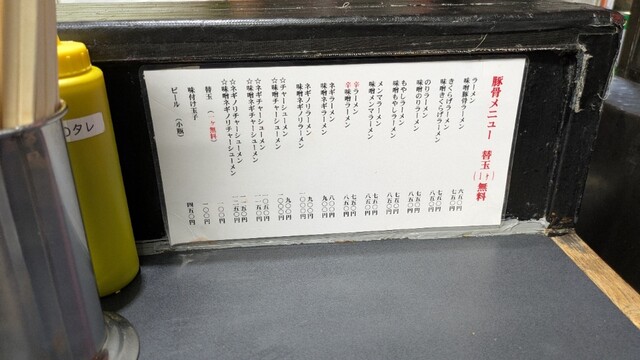 豚骨メニュー 替玉(一ヶ)無料
ラーメン 六五〇円
味噌豚骨ラーメン 七五〇円
きくらげラーメン 七五〇円
味噌きくらげラーメン 八五〇円
のりラーメン 七五〇円
味噌のりラーメン 八五〇円
もやしラーメン 七五〇円
味噌もやしラーメン 八五〇円
メンマラーメン 七五〇円
味噌メンマラーメン 八五〇円
辛ラーメン 七五〇円
辛味噌ラーメン 八五〇円
ネギラーメン 八〇〇円
味噌ネギラーメン 九〇〇円
ネギノリラーメン 九〇〇円
味噌ネギノリラーメン 一〇〇〇円
☆チャーシューメン 九〇〇円
☆味噌チャーシューメン 一〇〇〇円
☆ネギチャーシューメン 一〇五〇円
☆味噌ネギチャーシューメン 一一五〇円
☆ネギノリチャーシューメン 一一五〇円
☆味噌ネギノリチャーシューメン
替玉 (一ヶ無料) 一〇〇円
味付け玉子 一〇〇円
ビール (小瓶) 四五〇円
タレ